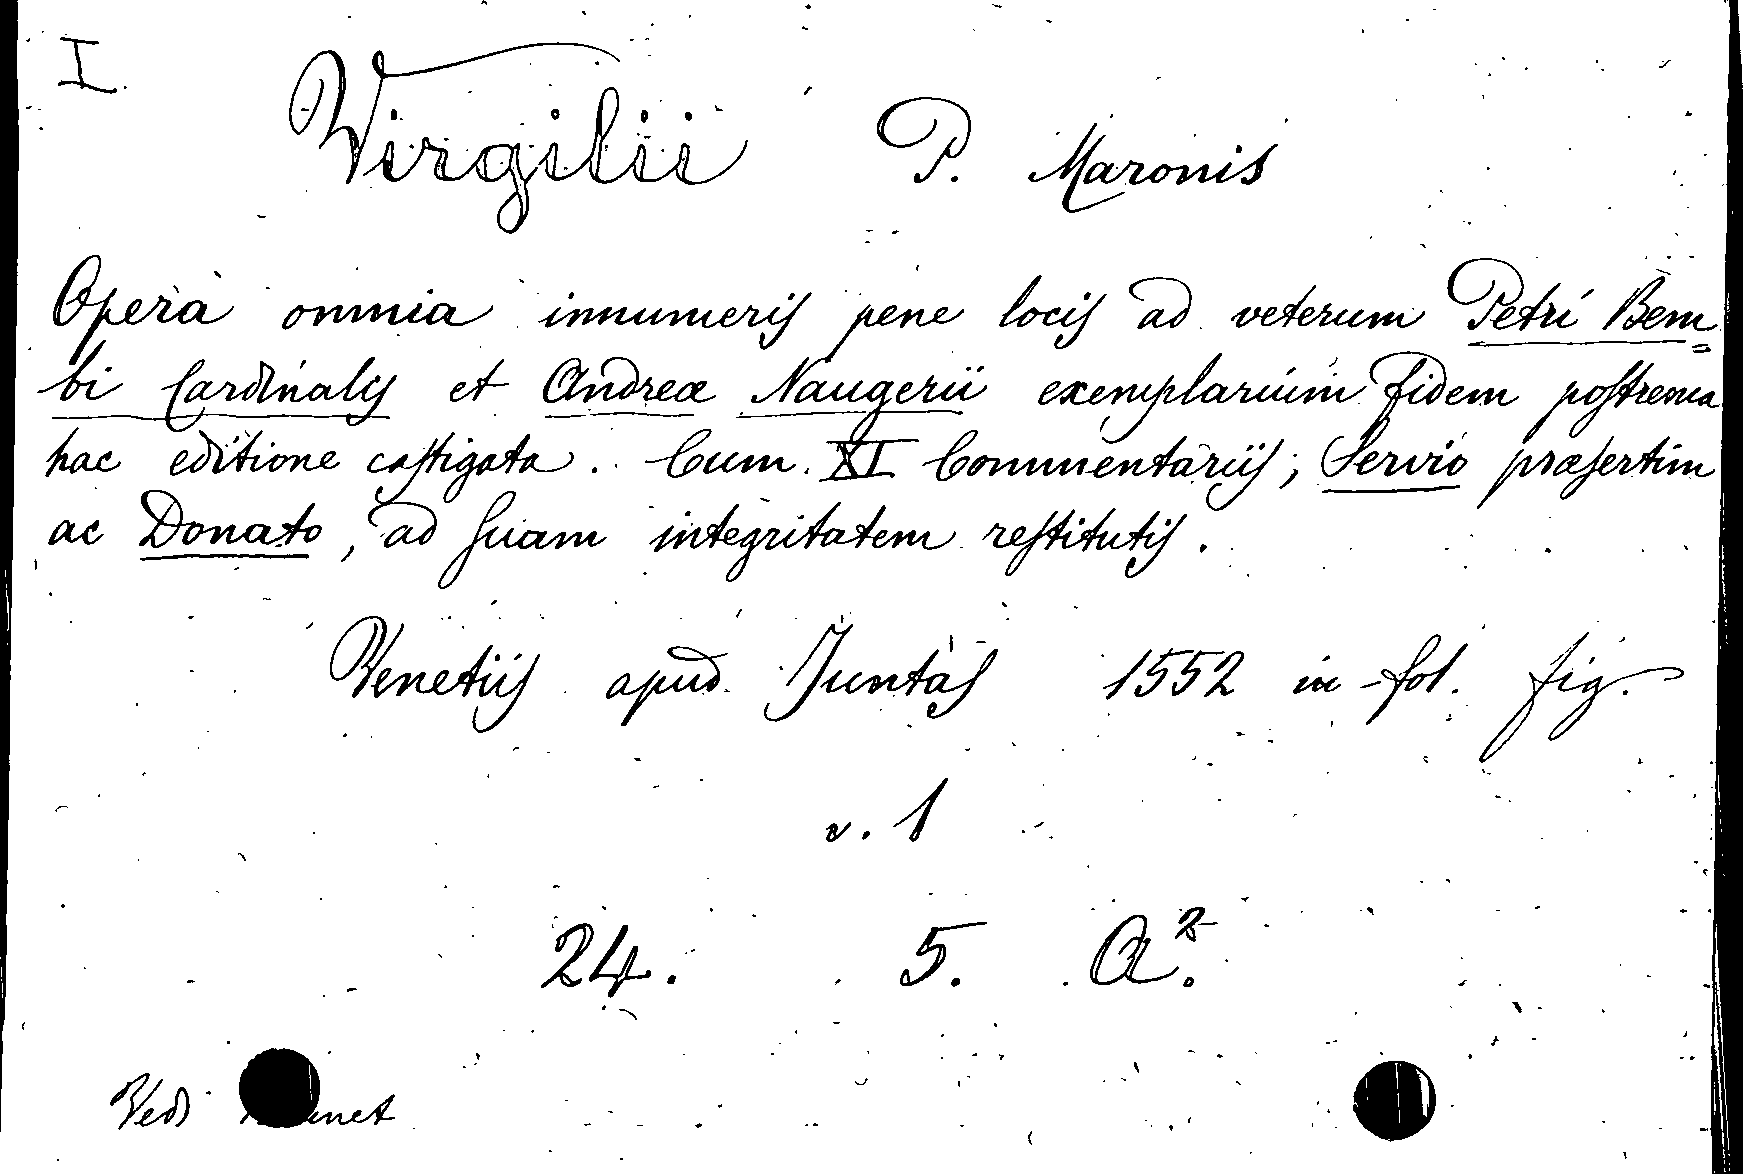 I
Virgilii P. Maronis
Opera omnia innumeris pene locis ad veterum Petri Bem=
bi Cardinalis et Andreæ Naugerii exemplarium fidem postrema
hac editione castigata. Cum XI Commentariis; Servio præsertim
ac Donato, ad suam integritatem restitutis.
Venetiis apud Juntas 1552 in-fol. fig.
v. 1
24. 5. A².
Vedi